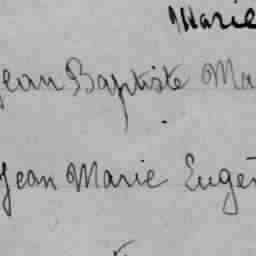 Marie
Jean Baptiste Ma
Jean Marie Eugè